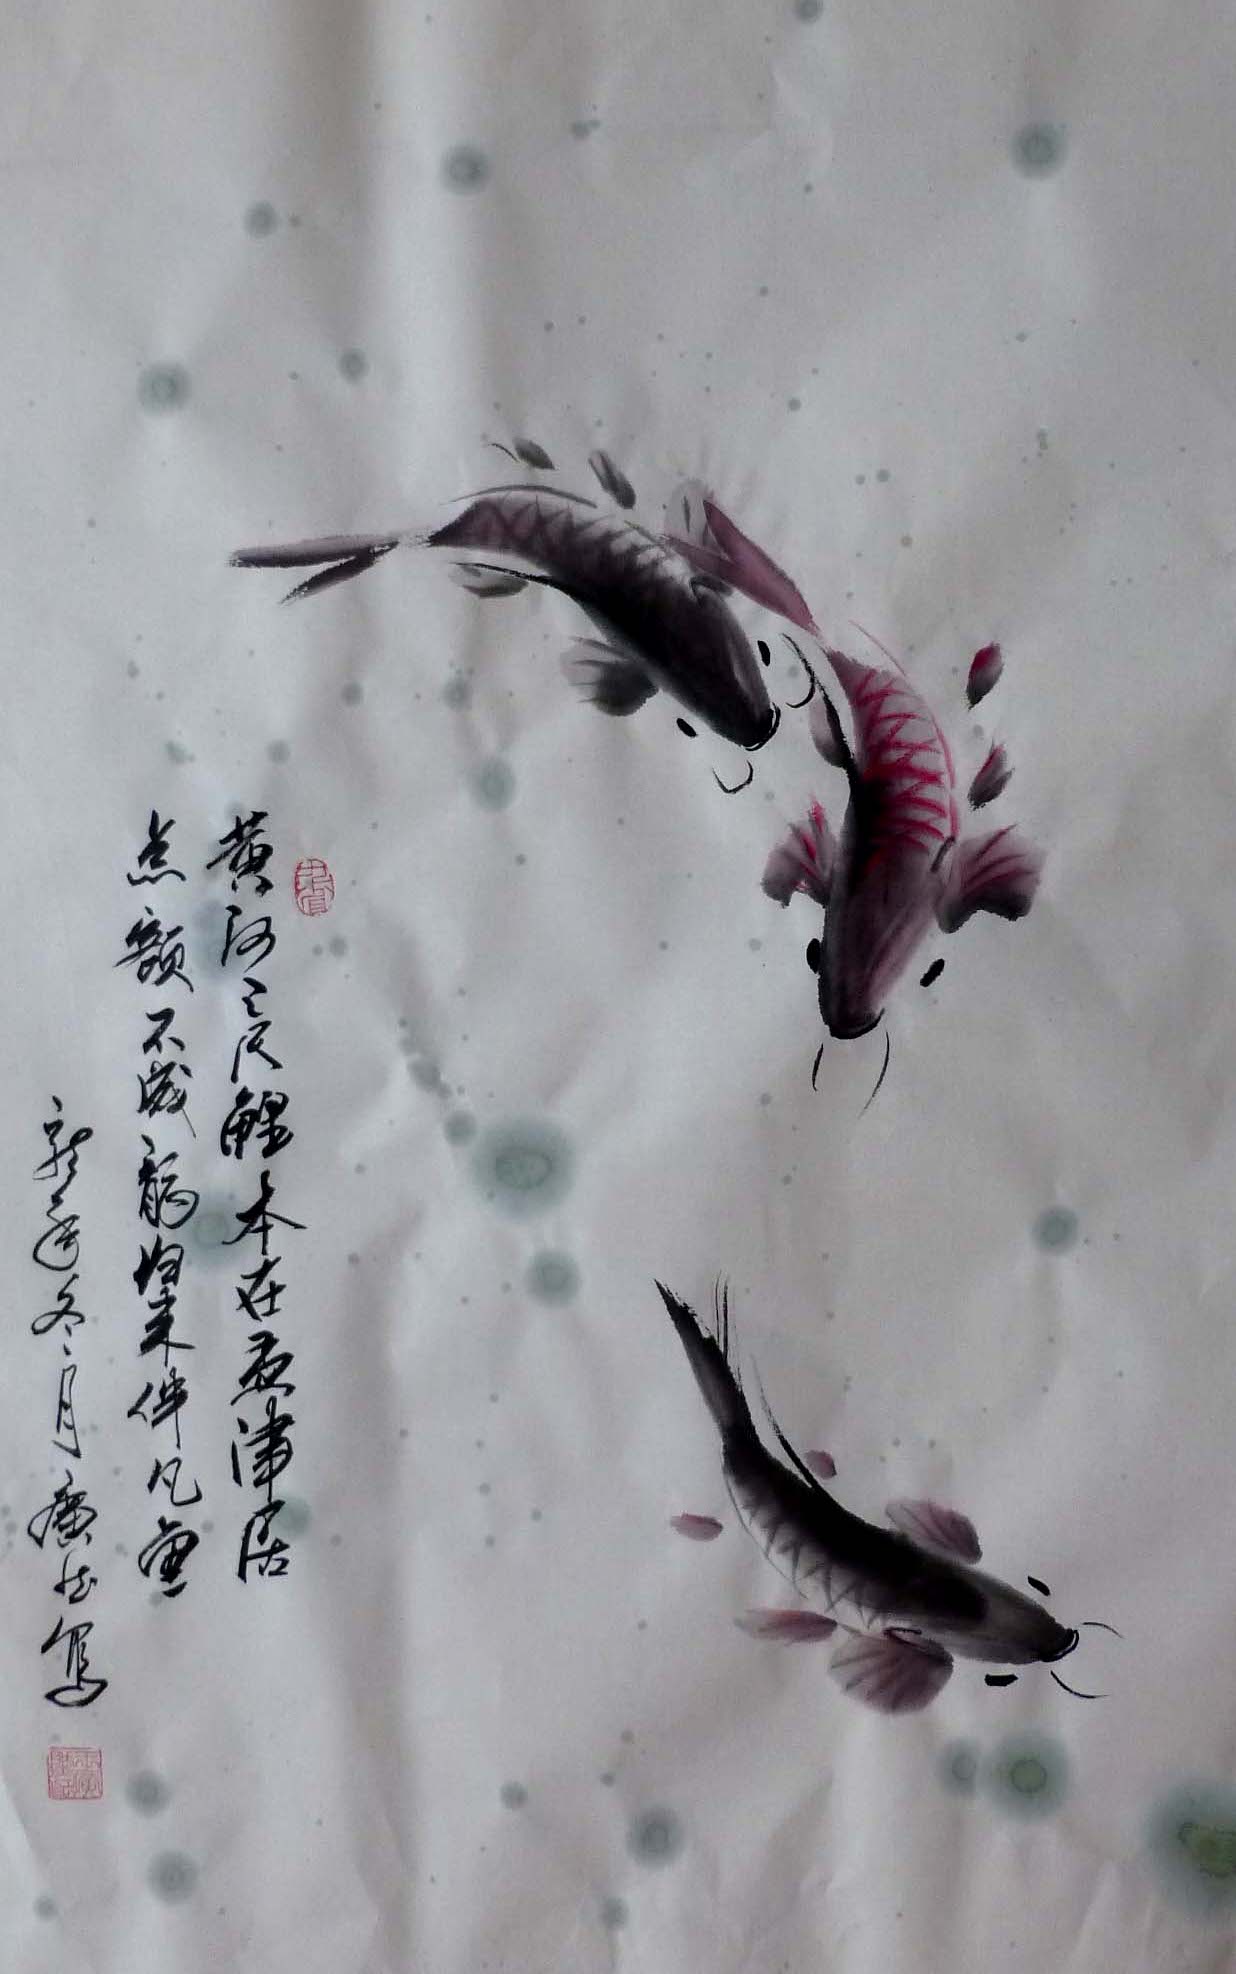 黄河三尺鲤本在孟津居
点额不成龙归来伴凡鱼
龙年冬月广志写